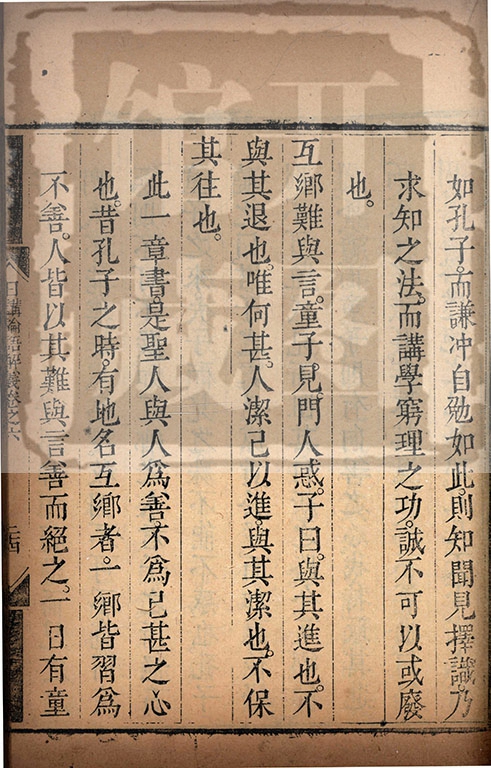 如孔子而謙冲自勉如此則知聞見擇識乃
求知之法而講學窮理之功誠不可以或廢
也。
互鄉難與言。童子見。門人惑。子曰。與其進也。不
與其退也。唯何甚。人潔己以進。與其潔也。不保
其往也。
此一章書是聖人與人爲善不爲已甚之心
也。昔孔子之時。有地名互鄉者。一鄉皆習爲
不善。人皆以其難與言善而絕之。一日有童
日講論語解義卷之六
二四